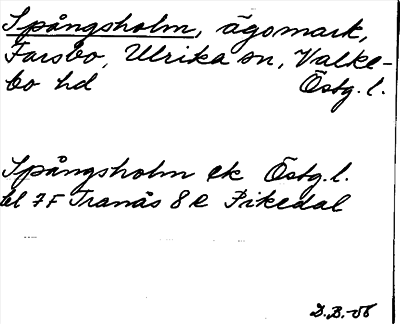 Spångsholm, ägomark,
Farsbo, Ulrika sn, Valke-
bo hd Östg. l.
Spångsholm ek Östg. l.
bl 7F Tranås 8e Pikedal
D.B.-56